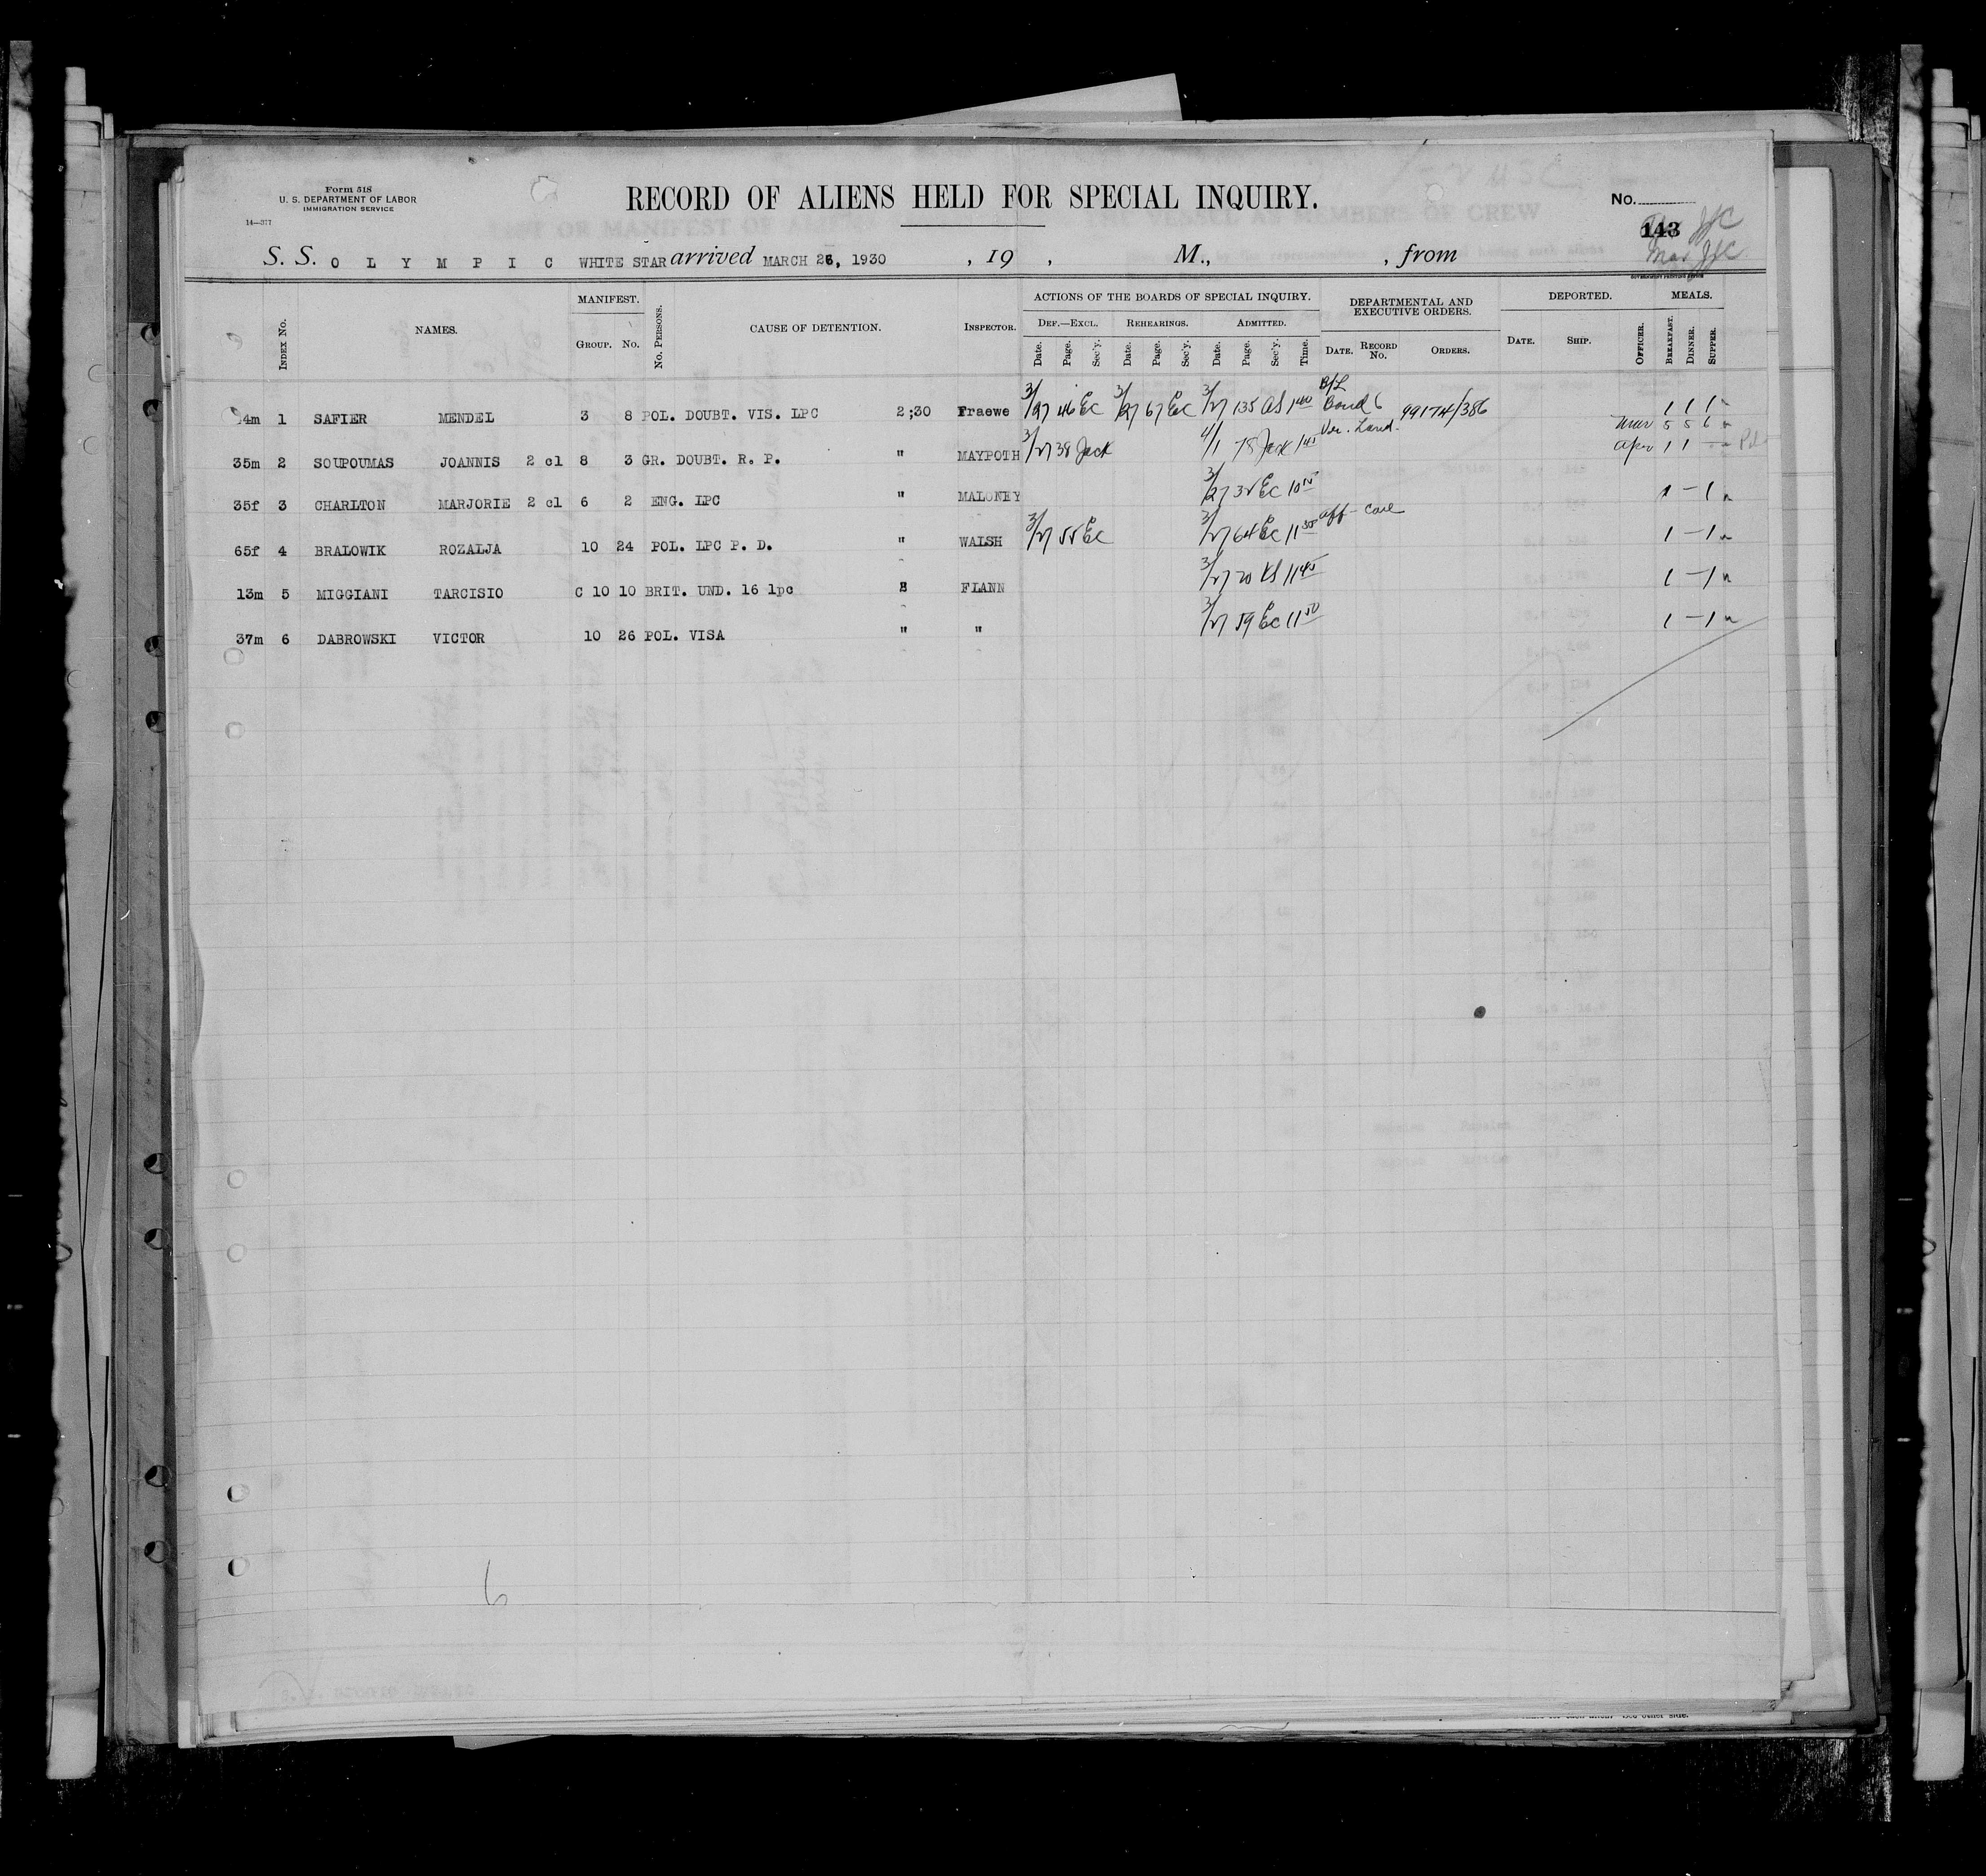 Form 518
U. S. DEPARTMENT OF LABOR
IMMIGRATION SERVICE
14—377
RECORD OF ALIENS HELD FOR SPECIAL INQUIRY.
No.
143
S. S. O L Y M P I C WHITE STAR arrived MARCH 26, 1930 , 19 , M., , from
GOVERNMENT PRINTING OFFICE
INDEX No. NAMES. MANIFEST. GROUP. No. No. PERSONS. CAUSE OF DETENTION. INSPECTOR.
ACTIONS OF THE BOARDS OF SPECIAL INQUIRY.
DEF.—EXCL. Date. Page. Sec'y. REHEARINGS. Date. Page. Sec'y. ADMITTED. Date. Page. Sec'y. Time.
DEPARTMENTAL AND EXECUTIVE ORDERS. DATE. RECORD No. ORDERS.
DEPORTED. DATE. SHIP. OFFICER.
MEALS. BREAKFAST. DINNER. SUPPER.
4m 1 SAFIER MENDEL 3 8 POL. DOUBT. VIS. LPC 2;30 Fraewe 3/27 46 EC 3/27 67 EC 3/27 135 AS 1 40 B/L Bond 6 99174/386 1 1 1
35m 2 SOUPOUMAS JOANNIS 2 cl 8 3 GR. DOUBT. R. P. " MAYPOTH 3/27 38 Jack 4/1 78 Jack 1 45 Ver. Land. Mar 5 5 6
Apr 1 1 —
35f 3 CHARLTON MARJORIE 2 cl 6 2 ENG. LPC " MALONEY 3/27 32 EC 10 15 1 — 1
65f 4 BRALOWIK ROZALJA 10 24 POL. LPC P. D. " WALSH 3/27 55 EC 3/27 64 EC 11 35 aff - care 1 — 1
13m 5 MIGGIANI TARCISIO C 10 10 BRIT. UND. 16 lpc 3 FLANN 3/27 20 KS 11 45 1 — 1
37m 6 DABROWSKI VICTOR 10 26 POL. VISA " " 3/27 59 EC 11 50 1 — 1
6
See other side.